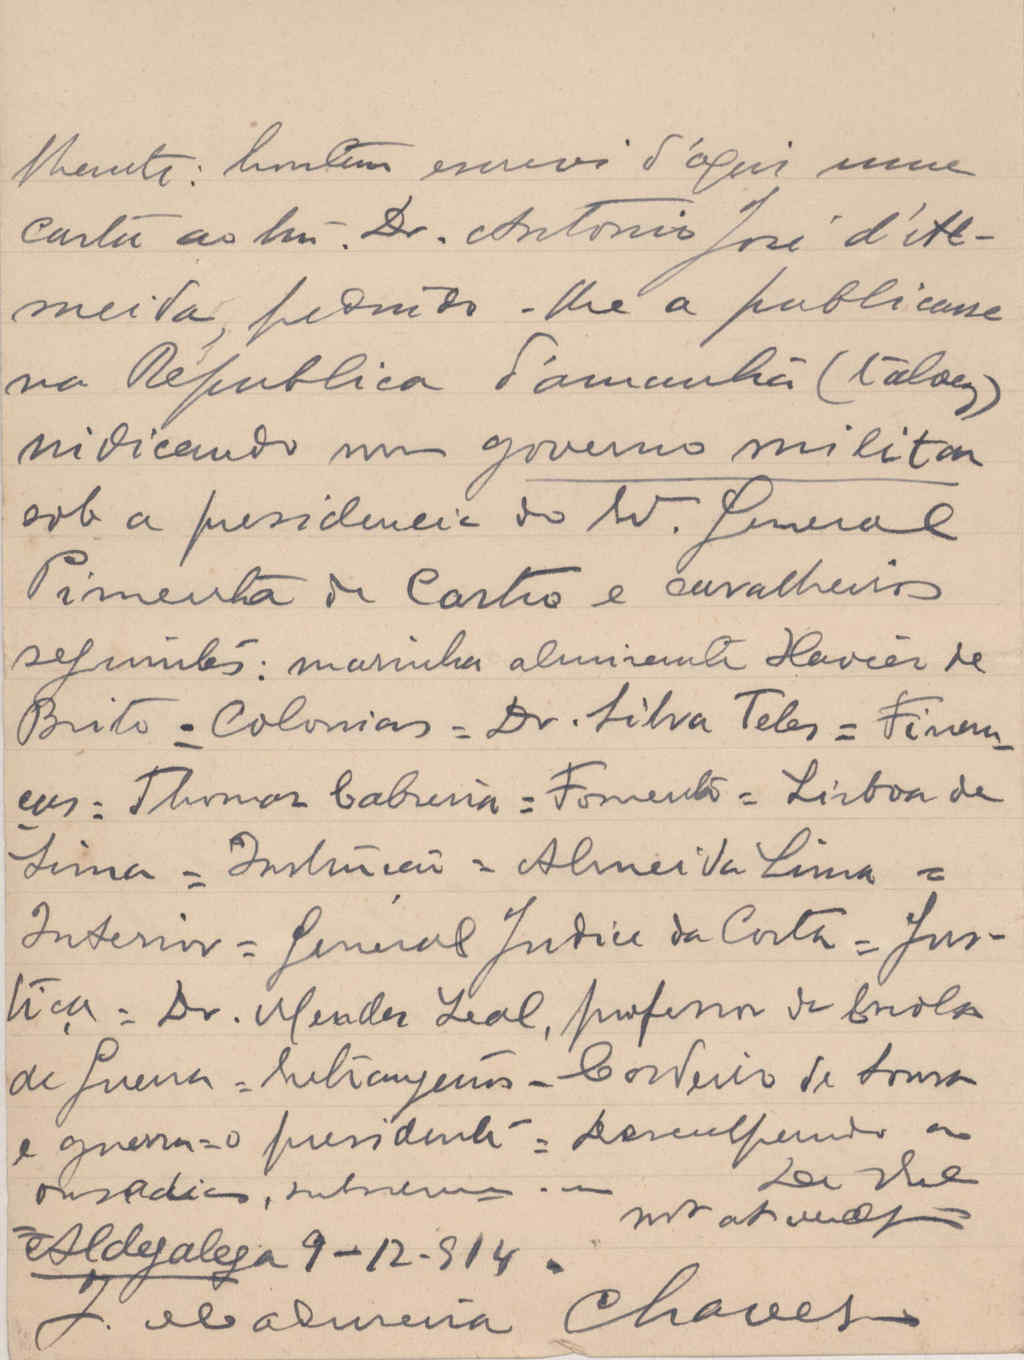 lhante: hontem escrevi d'aqui uma
carta ao Snr. Dr. Antonio José d'Al-
meida, pedindo-lhe a publicasse
na Republica d'amanhã (talvez)
indicando um governo militar
sob a presidencia do Sr. General
Pimenta de Castro e cavalheiros
seguintes: marinha almirante Xavier de
Brito = Colonias = Dr. Silva Teles = Finan-
ças = Thomaz Cabreira = Fomento = Lisboa de
Lima = Instrução = Almeida Lima =
Interior = General Judice da Costa = Jus-
tiça = Dr. Mendes Leal, professor da Escola
de Guerra = Estrangeiros = Cordeiro de Sousa
e guerra = o presidente = Desculpando a
ousadia, subscrevo-me De V. Ex.
mto atº venor
= Aldegalega 9-12-914.
J. Chaves